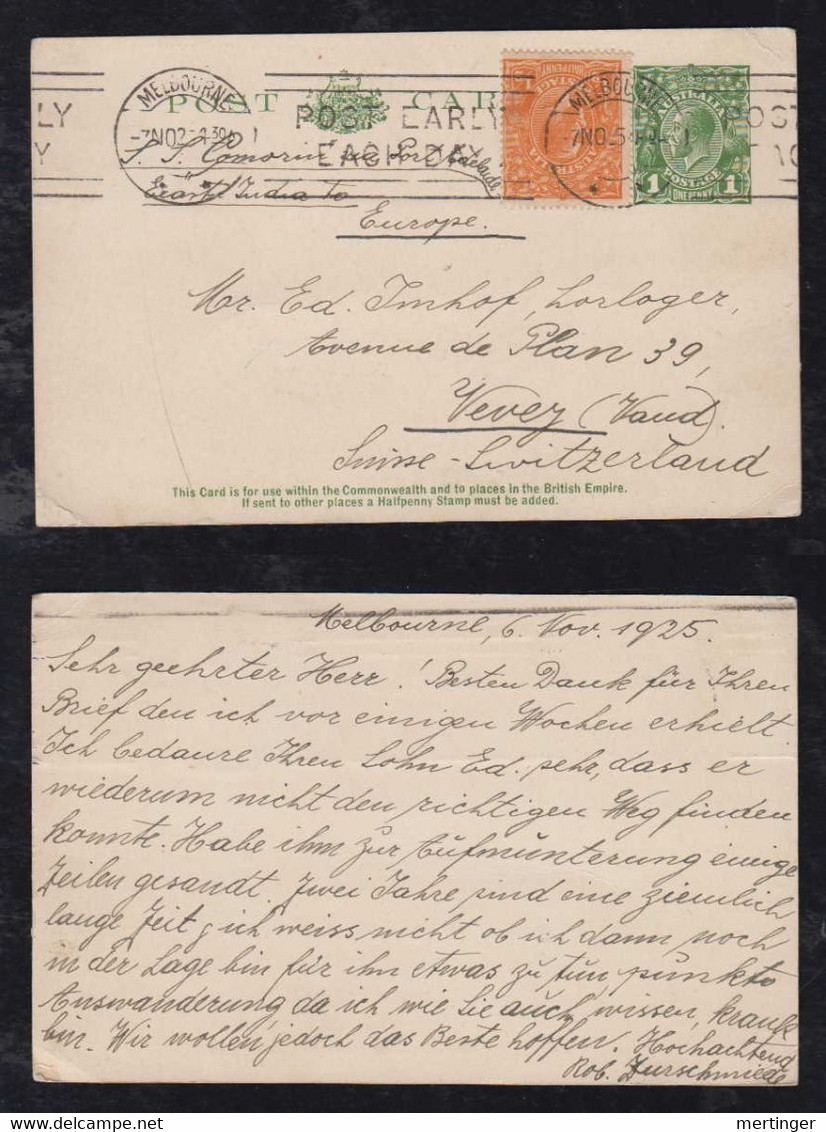 POST CARD
MELBOURNE
POST EARLY
EACH DAY
HALFPENNY
AUSTRALIA
POSTAGE
1 ONE PENNY 1
S. S. Comorin via Port Adelaide
East India to
Europe.
Mr. Ed. Imhof, horloger,
Avenue de Plan 39,
Vevey (Vaud).
Suisse - Switzerland
This Card is for use within the Commonwealth and to places in the British Empire.
If sent to other places a Halfpenny Stamp must be added.
Melbourne, 6. Nov. 1925.
Sehr geehrter Herr! Besten Dank für Ihren
Brief den ich vor einigen Wochen erhielt.
Ich bedaure Ihren Sohn Ed. sehr, dass er
wiederum nicht den richtigen Weg finden
konnte. Habe ihm zur Aufmunterung einige
Zeilen gesandt. Zwei Jahre sind eine ziemlich
lange Zeit, ich weiss nicht ob ich dann noch
in der Lage bin für ihn etwas zu tun punkto
Auswanderung, da ich wie Sie auch wissen, krank
bin. Wir wollen jedoch das Beste hoffen. Hochachtend
Rob. Zurschmiede
mertinger